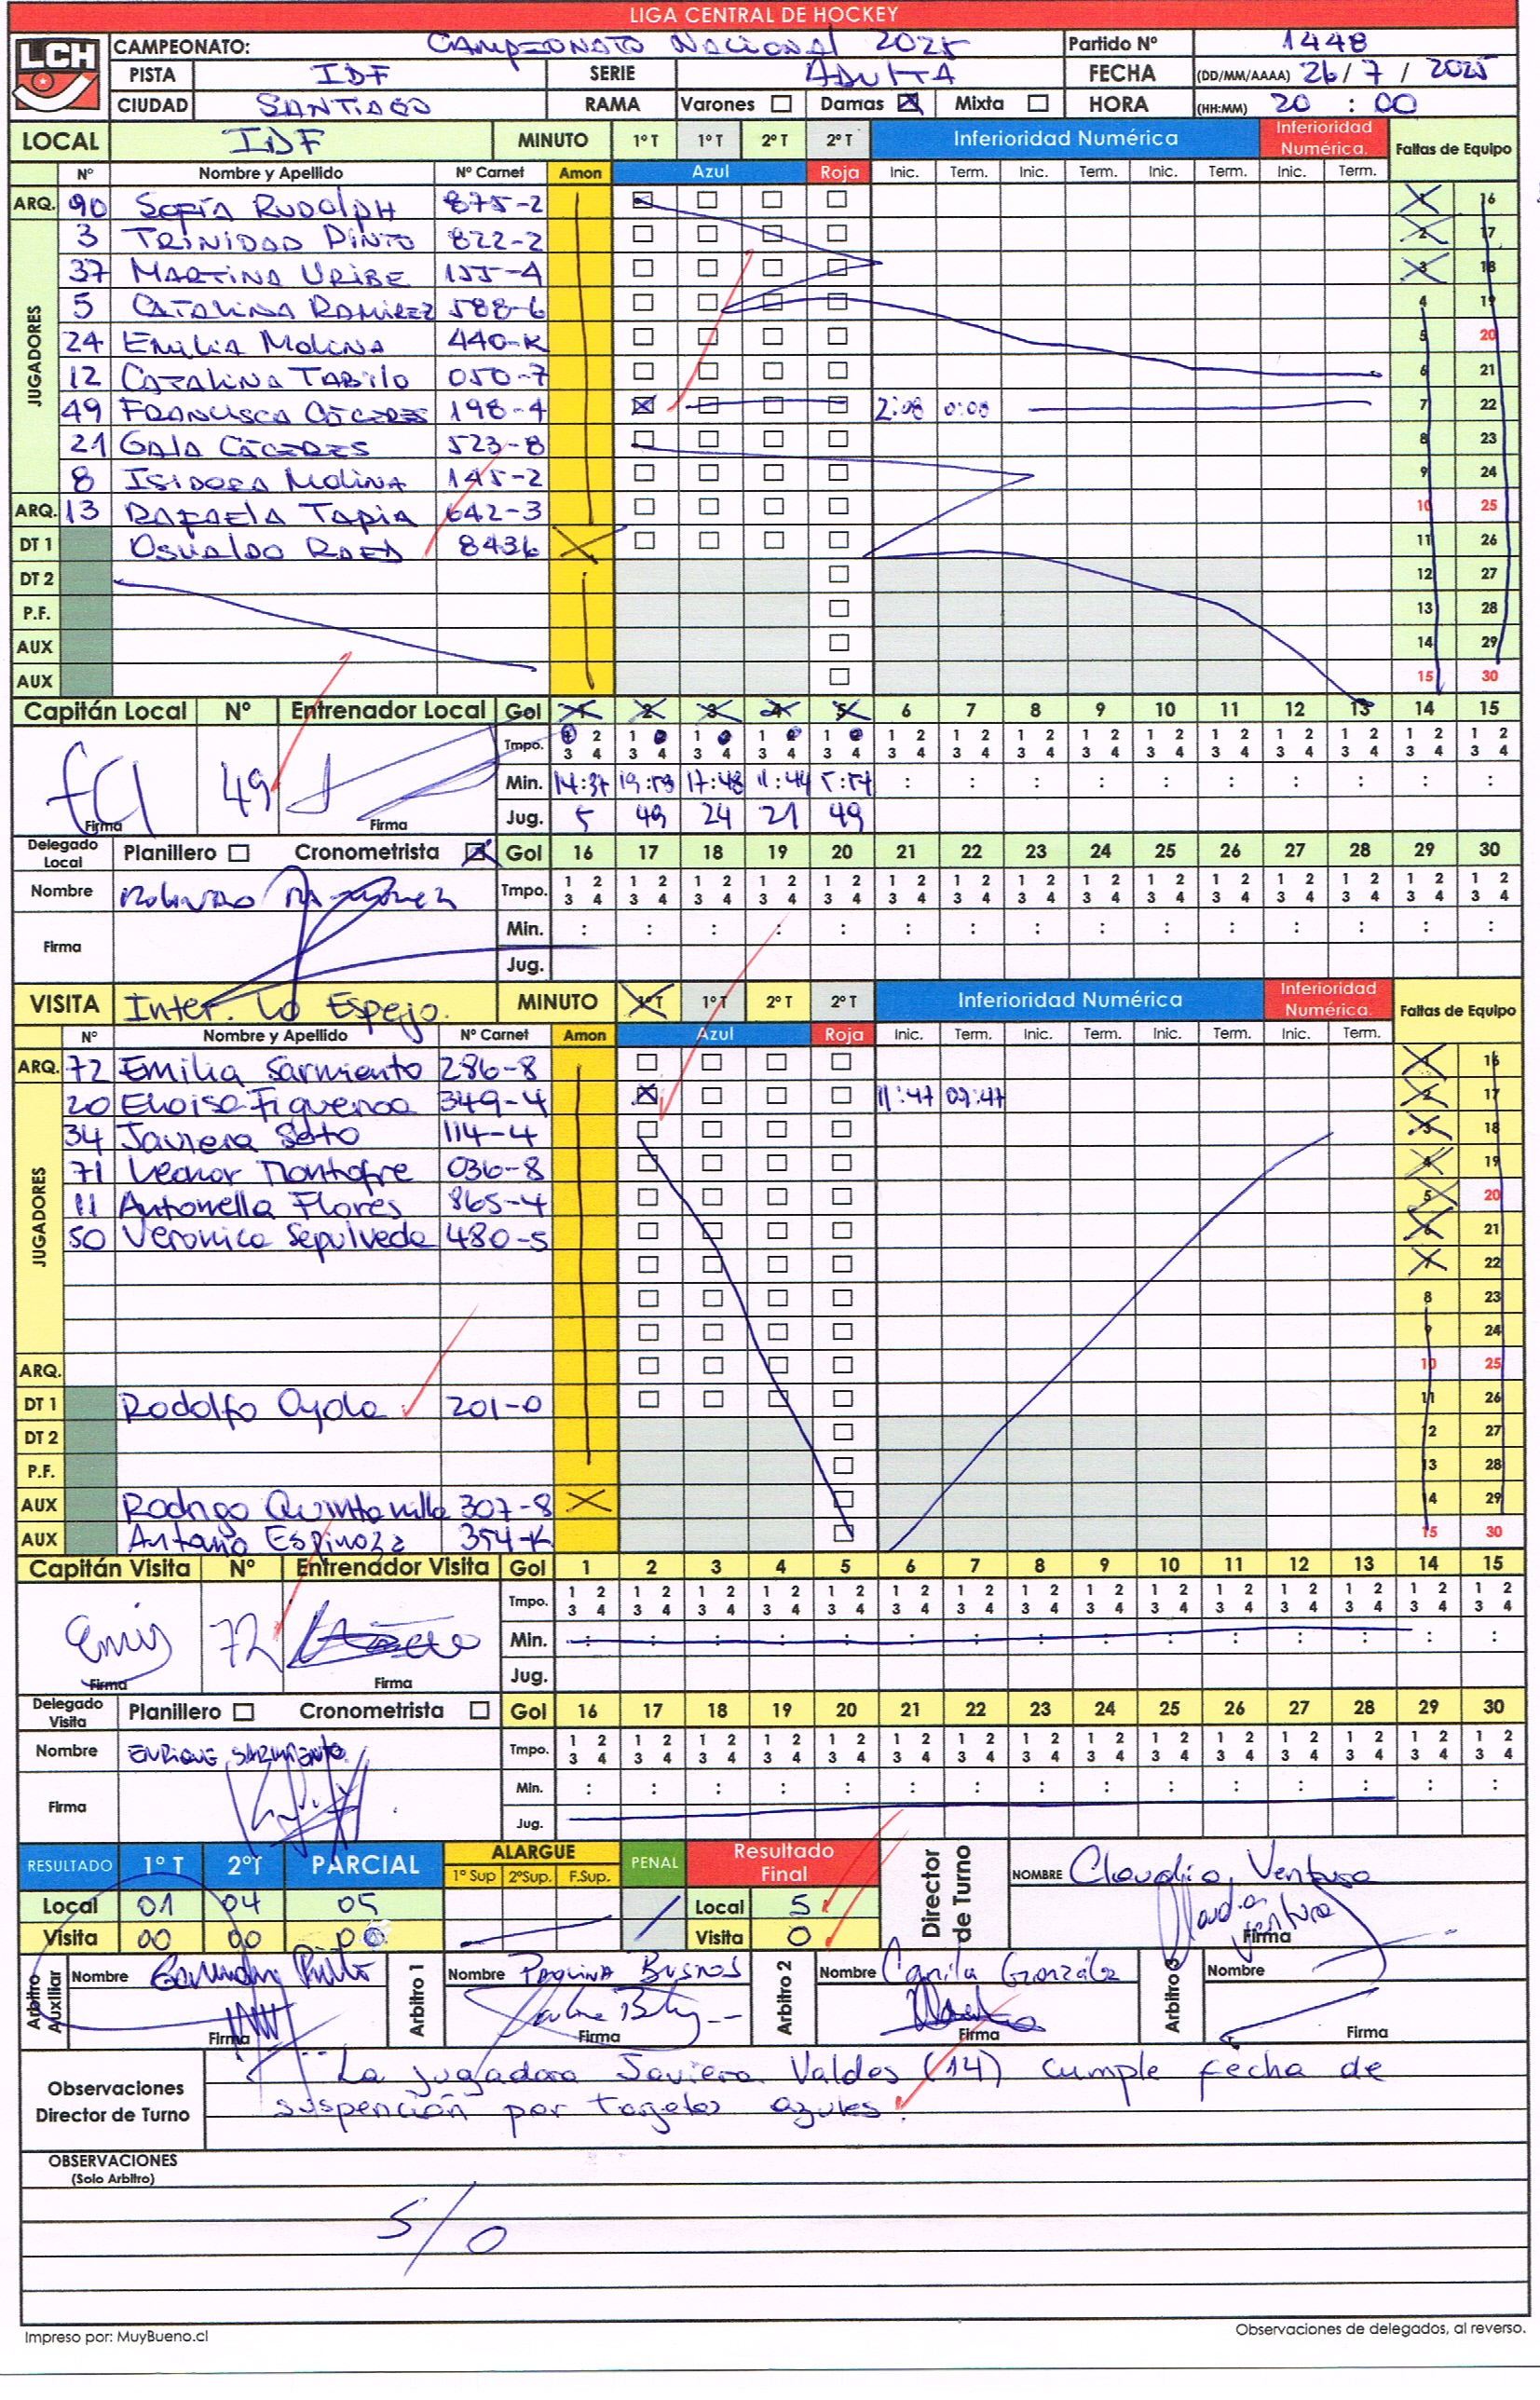 LIGA CENTRAL DE HOCKEY
LCH
CAMPEONATO: CAMPEONATO NACIONAL 2025 Partido Nº 1448
PISTA IDF SERIE ADULTA FECHA (DD/MM/AAAA) 26/ 7 / 2025
CIUDAD SANTIAGO RAMA Varones Damas Mixta HORA (HH:MM) 20 : 00
LOCAL IDF MINUTO 1º T 1º T 2º T 2º T Inferioridad Numérica Inferioridad Numérica. Faltas de Equipo
Nº Nombre y Apellido Nº Carnet Amon Azul Roja Inic. Term. Inic. Term. Inic. Term. Inic. Term.
JUGADORES
ARQ. 90 SOFÍA RUDOLPH 875-2 1 16
3 TRINIDAD PINTO 822-2 2 17
37 MARTINA URIBE 155-4 3 18
5 CATALINA RAMIREZ 588-6 4 19
24 EMILIA MOLINA 440-K 5 20
12 CATALINA TABILO 050-7 6 21
49 FRANCISCA CÁCERES 198-4 2:08 0:08 7 22
21 GALA CÁCERES 523-8 8 23
8 ISIDORA MOLINA 145-2 9 24
ARQ. 13 RAFAELA TAPIA 642-3 10 25
DT 1 OSVALDO RAED 8436 11 26
DT 2 12 27
P.F. 13 28
AUX 14 29
AUX 15 30
Capitán Local Nº Entrenador Local Gol 1 2 3 4 5 6 7 8 9 10 11 12 13 14 15
Tmpo. 1 2 3 4 1 2 3 4 1 2 3 4 1 2 3 4 1 2 3 4 1 2 3 4 1 2 3 4 1 2 3 4 1 2 3 4 1 2 3 4 1 2 3 4 1 2 3 4 1 2 3 4 1 2 3 4 1 2 3 4
49 Min. 14:37 17:48 11:44 : : : : : : : : : :
Firma Firma Jug. 5 49 24 21 49
Delegado Local Planillero Cronometrista Gol 16 17 18 19 20 21 22 23 24 25 26 27 28 29 30
Nombre Tmpo. 1 2 3 4 1 2 3 4 1 2 3 4 1 2 3 4 1 2 3 4 1 2 3 4 1 2 3 4 1 2 3 4 1 2 3 4 1 2 3 4 1 2 3 4 1 2 3 4 1 2 3 4 1 2 3 4 1 2 3 4
Firma Min. : : : : : : : : : : : : : : :
Jug.
VISITA Inter. Lo Espejo. MINUTO 1º T 1º T 2º T 2º T Inferioridad Numérica Inferioridad Numérica. Faltas de Equipo
Nº Nombre y Apellido Nº Carnet Amon Azul Roja Inic. Term. Inic. Term. Inic. Term. Inic. Term.
JUGADORES
ARQ. 72 Emilia Sarmiento 286-8 1 16
20 Eloisa Figueroa 349-4 11:47 09:47 2 17
34 Javiera Soto 114-4 3 18
71 Leonor Montofre 036-8 4 19
11 Antonella Flores 865-4 5 20
50 Veronica Sepulveda 480-5 6 21
7 22
8 23
9 24
ARQ. 10 25
DT 1 Rodolfo Ayala 201-0 11 26
DT 2 12 27
P.F. 13 28
AUX Rodrigo Quintanilla 307-8 14 29
AUX Antonio Espinoza 354-K 15 30
Capitán Visita Nº Entrenador Visita Gol 1 2 3 4 5 6 7 8 9 10 11 12 13 14 15
Tmpo. 1 2 3 4 1 2 3 4 1 2 3 4 1 2 3 4 1 2 3 4 1 2 3 4 1 2 3 4 1 2 3 4 1 2 3 4 1 2 3 4 1 2 3 4 1 2 3 4 1 2 3 4 1 2 3 4 1 2 3 4
Emis 72 Min. : : : : : : : : : : : : : : :
Firma Firma Jug.
Delegado Visita Planillero Cronometrista Gol 16 17 18 19 20 21 22 23 24 25 26 27 28 29 30
Nombre ENRIQUE SARMIENTO Tmpo. 1 2 3 4 1 2 3 4 1 2 3 4 1 2 3 4 1 2 3 4 1 2 3 4 1 2 3 4 1 2 3 4 1 2 3 4 1 2 3 4 1 2 3 4 1 2 3 4 1 2 3 4 1 2 3 4 1 2 3 4
Firma Min. : : : : : : : : : : : : : : :
Jug.
RESULTADO 1º T 2ºT PARCIAL ALARGUE 1º Sup 2ºSup. F.Sup. PENAL Resultado Final Director de Turno NOMBRE Claudia Ventura
Local 01 04 05 Local 5 Claudia Ventura
Visita 00 00 00 Visita 0 Firma
Arbitro Auxiliar Nombre Arbitro 1 Nombre PAULINA BUSTOS Arbitro 2 Nombre Camila González Arbitro 3 Nombre
Firma Firma Firma Firma
Observaciones Director de Turno
La jugadora Javiera Valdes (14) cumple fecha de
suspención por tarjetas azules.
OBSERVACIONES
(Solo Arbitro)
S/O
Impreso por: MuyBueno.cl Observaciones de delegados, al reverso.